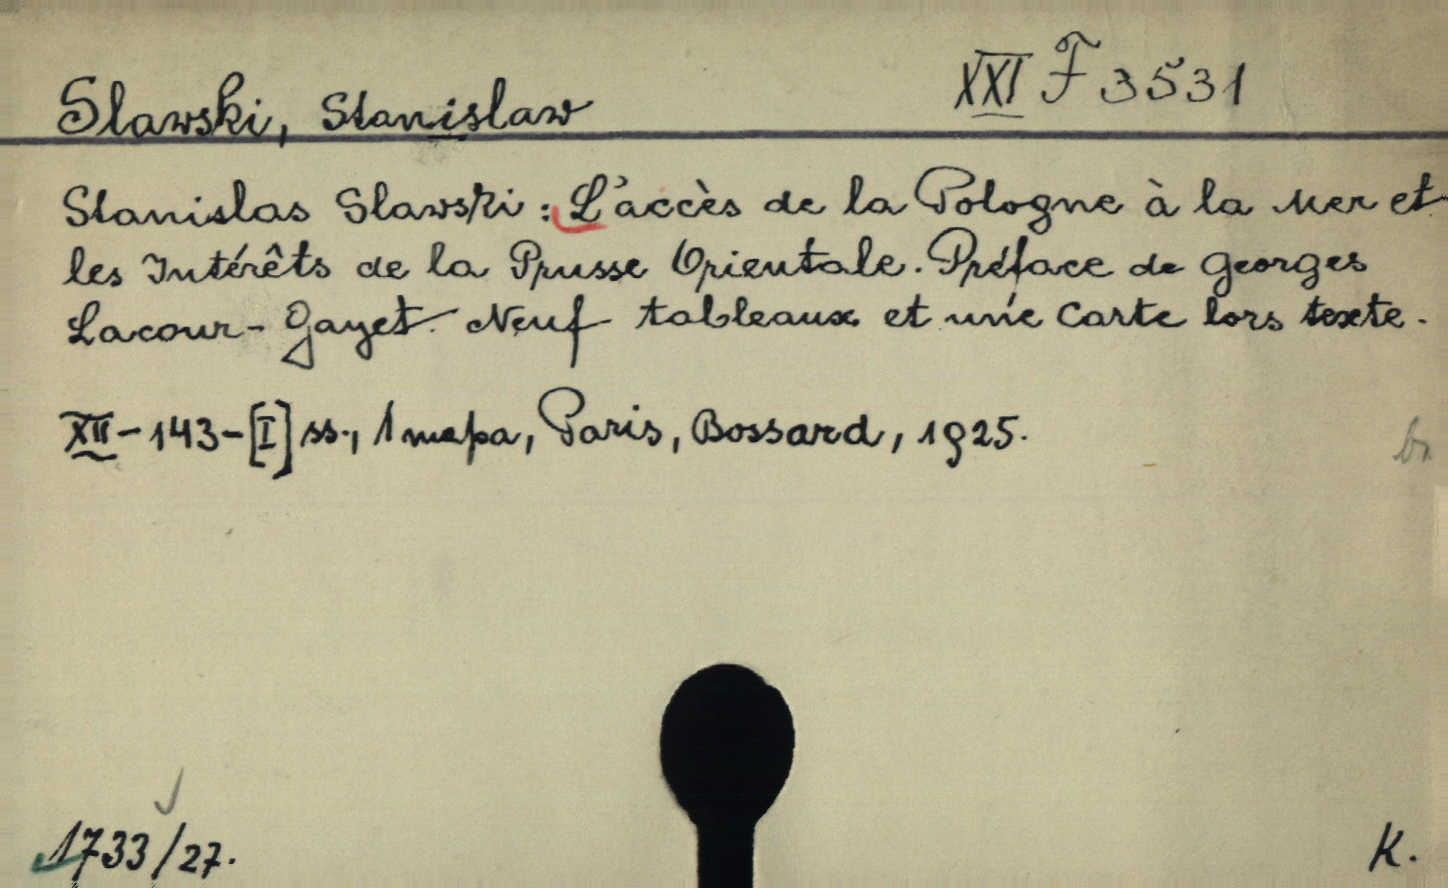 XXI F 3531
Slawski, Stanislaw
Stanislas Slawski : L'accès de la Pologne à la Mer et
les Intérêts de la Prusse Orientale. Préface de Georges
Lacour-Gayet. Neuf tableaux et une Carte lors texte.
XII-143-[I] ss., 1 mapa, Paris, Bossard, 1925.
1733/27.
K.